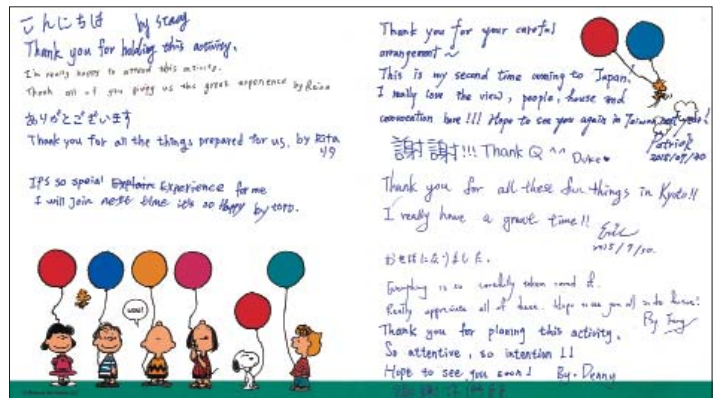 こんにちは by stacy
Thank you for holding this activity.
I'm really happy to attend this activity.
Thank all of you giving us the great experience by Reina
ありがとございます
Thank you for all the things prepared for us. by Rita
IPS so speial Explain Experience for me
I will join next time it's so Happy by TOPO.
Thank you for your careful
arrangement ~
This is my second time coming to Japan!
I really love the view, people, house and
convocation here!!! Hope to see you again in Taiwan next year!
Patrick
2015/07/30
謝謝!!! Thank Q ^^ Duke
Thank you for all these fun things in Kyoto!!
I really have a great time!!
Eric
2015/7/30.
おせはになりました.
Everything is so carefully taken cared of.
Really appreciate all of these. Hope to see you all in the future!
By
Thank you for planing this activity.
So attentive, so intention !!
Hope to see you soon! By. Denny
謝謝你們